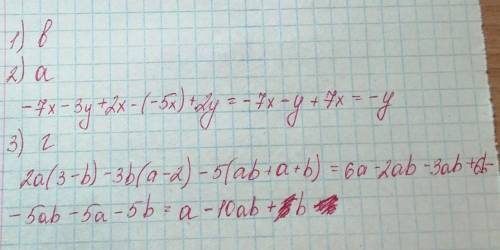 1) в
2) а
-7x - 3y + 2x - (-5x) + 2y = -7x - y + 7x = -y
3) г
2a(3-b) - 3b(a-2) - 5(ab+a+b) = 6a - 2ab - 3ab + 6b -
- 5ab - 5a - 5b = a - 10ab + b